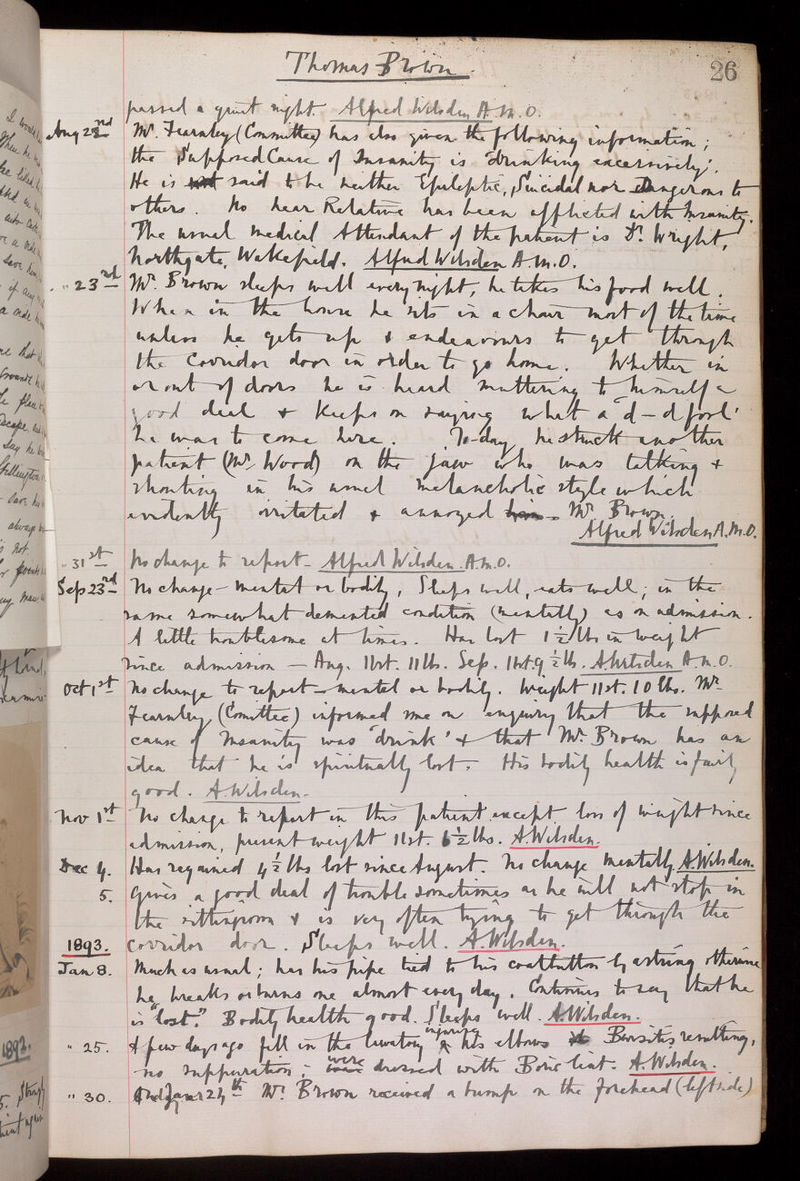 Thomas Brown
26
passed a quiet night. Alfred Wilsden A.M.O.
Aug 22nd Mr. Fearnley (Committee) has also given the following information;
the Supposed Cause of Insanity is "drinking excessively".
He is not said to be neither Epileptic, Suicidal nor dangerous to
others. No near Relative has been afflicted with Insanity.
The usual medical Attendant of the patient is Dr. Wright,
Northgate, Wakefield. Alfred Wilsden A.M.O.
" 23rd Mr. Brown sleeps well every night, he takes his food well.
When in the house he sits in a chair most of the time
unless he gets up & endeavours to get through
the Corridor door in order to go home. Whether in
or out of doors he is heard muttering to himself a
good deal & keeps on saying what a 'd—d fool'
he was to come here. To-day he struck another
patient (Mr. Wood) on the jaw who was talking &
shouting in his usual melancholic style which
evidently irritated & annoyed Mr Brown.
Alfred Wilsden A.M.O.
" 31st No change to report. Alfred Wilsden. A.M.O.
Sep 23rd No change – mental or bodily, Sleeps well, eats well; in the
same somewhat demented condition (mentally) as on admission.
A little troublesome at times. Has lost 1½ lbs in weight
since admission — Aug. 11st. 11lbs. Sep. 11st. 9½ lb. A Wilsden A.M.O.
Oct 1st No change to report – mental or bodily. Weight 11st. 10 lbs. Mr.
Fearnley (Comittee) informed me on enquiry that the supposed
cause of Insanity was 'drink' & that Mr. Brown has an
idea that he is spiritually lost. His bodily health is fairly
good. A. Wilsden.
Nov 1st No change to report in this patient except loss of weight since
admission, present weight 11st. 6½ lbs. A. Wilsden.
Dec 4. Has regained 4½ lbs lost since August. No change mentally. A. Wilsden.
5. Gives a good deal of trouble sometimes as he will not stop in
the sittingroom & is very often trying to get through the
1893. corridor door. Sleeps well. A. Wilsden.
Jan 8. Much as usual; has his pipe tied to his coatbutton by a string otherwise
he breaks or burns one almost every day. Continues to say that he
is "lost." Bodily health good. Sleeps well. A. Wilsden.
" 25. A few days ago fell in the lavatory injuring his elbows Bursitis resulting,
no suppuration; were dressed with Boric lint. A. Wilsden.
" 30. 24th Mr. Brown received a bump on the forehead (left side)